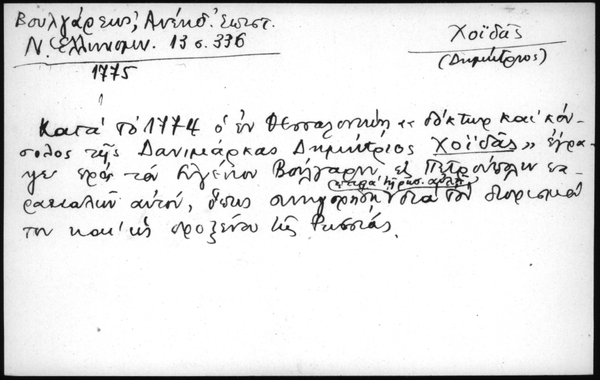 Βουλγάρεως, Ἀνέκδ. Ἐπιστ.
Ν. Ἑλληνομν. 13 σ. 336
1775
Χοϊδᾶς
(Δημήτριος)
Κατά τό 1774 ὁ ἐν Θεσσαλονίκῃ «δόκτωρ καί κόν-
σολος τῆς Δανιμάρκας Δημήτριος Χοϊδᾶς» ἔγρα-
ψε πρός τόν Εὐγένιον Βούλγαρην εἰς Πετρούπολιν πα-
ρακαλῶν αὐτόν, ὅπως συνηγορήσῃ διά τόν διορισμό
του καί ὡς προξένου τῆς Ρωσσίας.